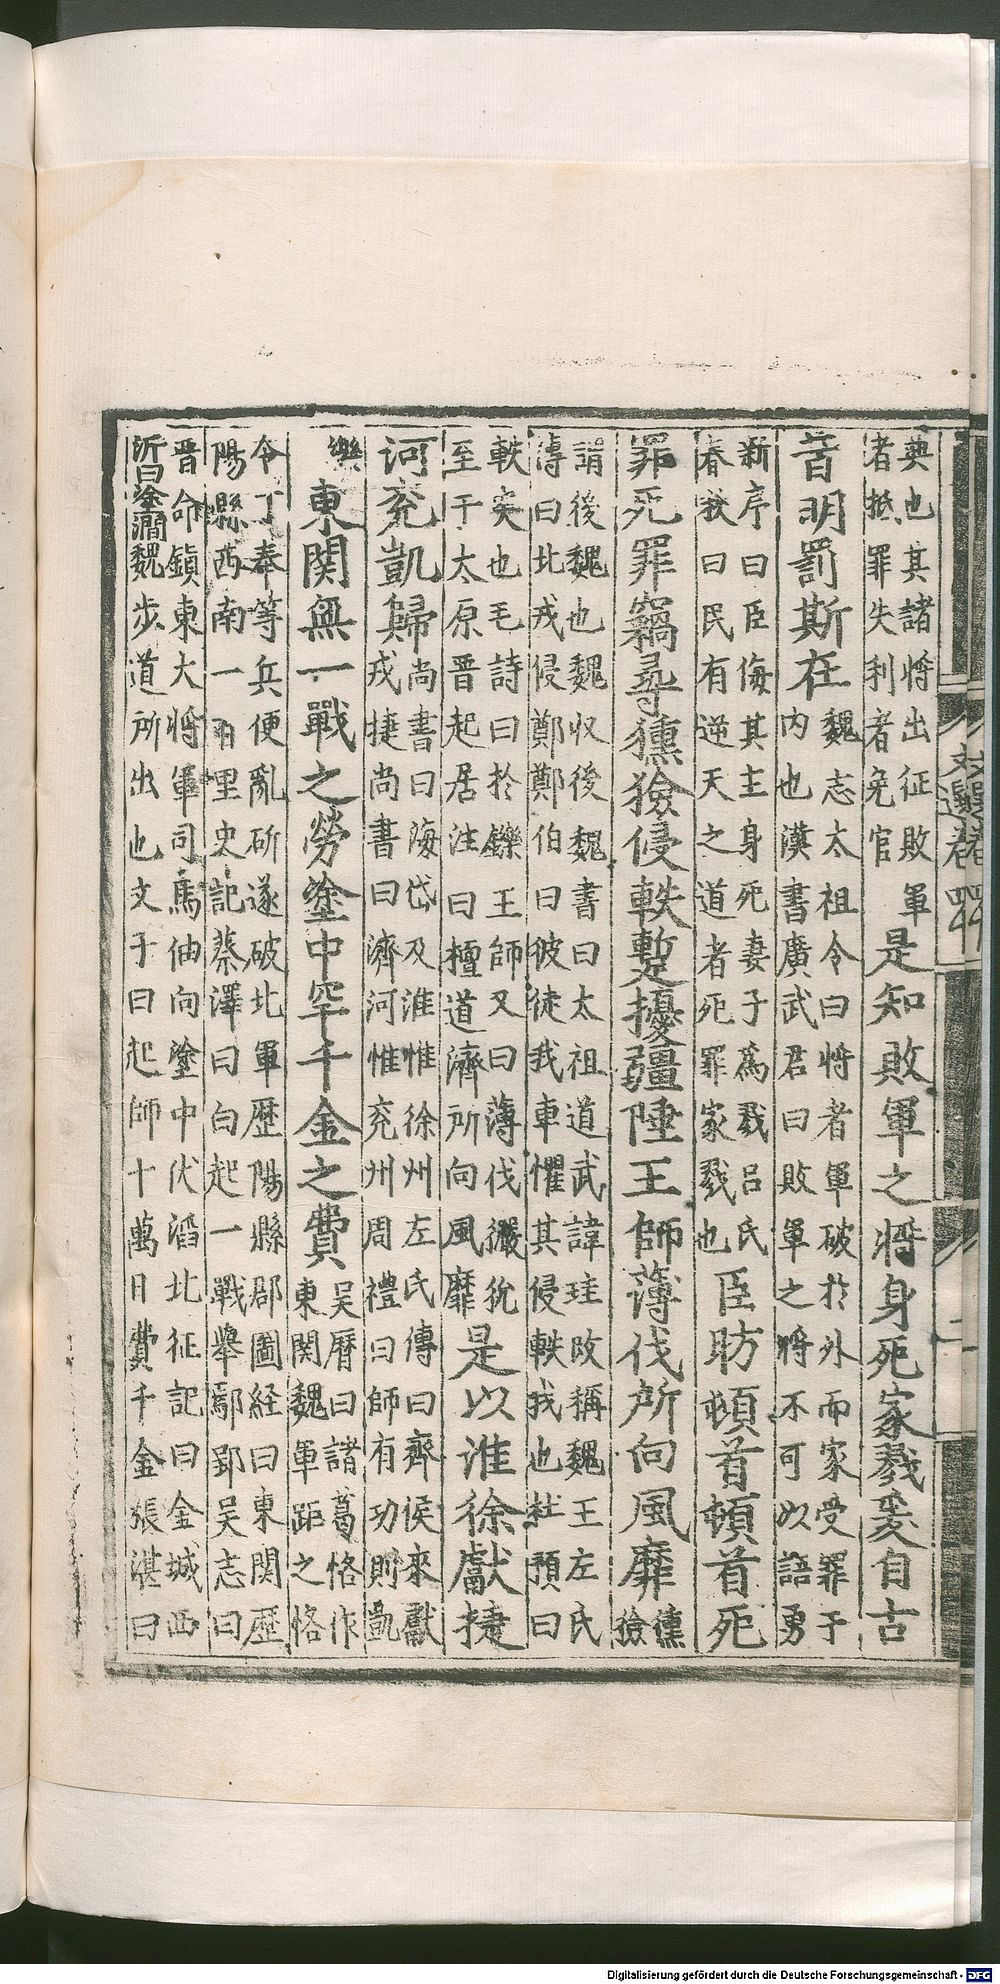 文選卷四
二
典也其諸將出征敗軍
者抵罪失利者免官
是知敗軍之將身死家戮爰自古
昔明罰斯在
魏志太祖令曰將者軍破於外而家受罪于
内也漢書廣武君曰敗軍之將不可以語勇
新序曰臣侮其主身死妻子爲戮吕氏
春秋曰民有逆天之道者死罪家戮也
臣昉頓首頓首死
罪死罪竊尋獯獫侵軼蹔擾疆陲王師薄伐所向風靡
獯
獫
謂後魏也魏収後魏書曰太祖道武諱珪改稱魏王左氏
傳曰北戎侵鄭鄭伯曰彼徒我車懼其侵軼我也杜預曰
軼突也毛詩曰於鑠王師又曰薄伐玁狁
至于太原晉起居注曰檀道濟所向風靡
是以淮徐獻捷
河兖凱歸
尚書曰海岱及淮惟徐州左氏傳曰齊侯來獻
戎捷尚書曰濟河惟兖州周禮曰師有功則凱
樂
東関無一戰之勞塗中罕千金之費
吴曆曰諸葛恪作
東関魏軍距之恪
令丁奉等兵便亂斫遂破北軍歷陽縣郡圖経曰東関歷
陽縣西南一百里史記蔡澤曰白起一戰舉鄢郢吴志曰
晋命鎮東大將軍司馬伷向塗中伏滔北征記曰金城西
沂曰塗澗魏步道所出也文子曰起師十萬日費千金張湛曰
Digitalisierung gefördert durch die Deutsche Forschungsgemeinschaft - DFG